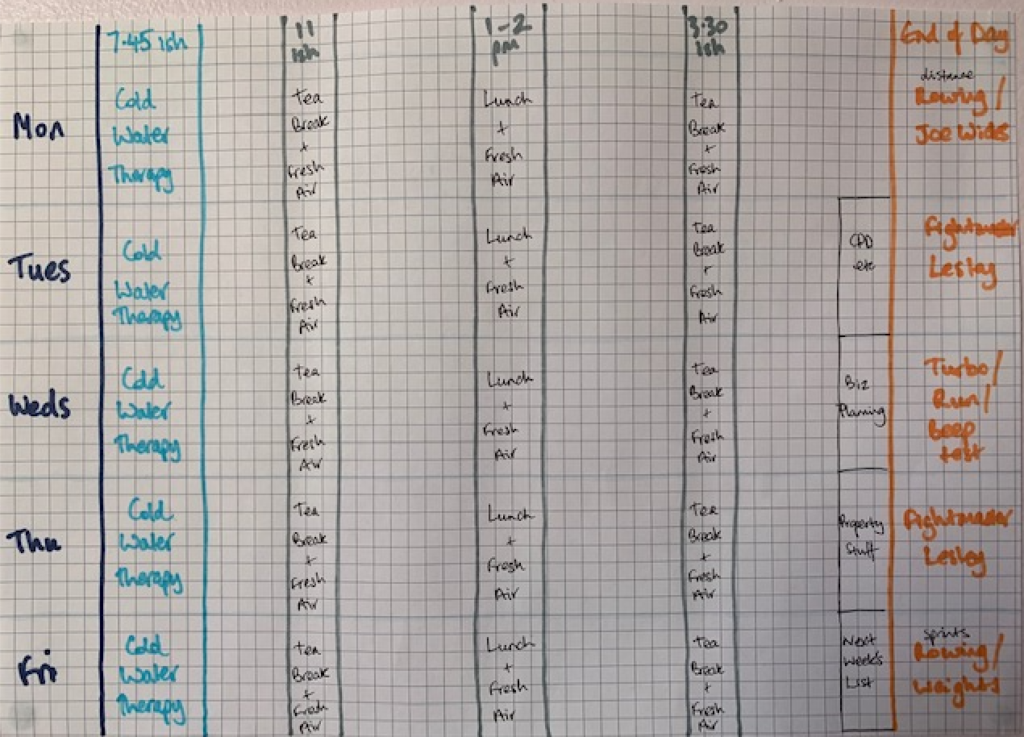 7.45 ish
11
ish
1-2
pm
3.30
ish
End of Day
Mon
Cold
Water
Therapy
Tea
Break
+
Fresh
Air
Lunch
+
Fresh
Air
Tea
Break
+
Fresh
Air
distance
Rowing /
Joe Wicks
Tues
Cold
Water
Therapy
Tea
Break
+
Fresh
Air
Lunch
+
Fresh
Air
Tea
Break
+
Fresh
Air
CPD
etc
Fightmaster
Lesley
Weds
Cold
Water
Therapy
Tea
Break
+
Fresh
Air
Lunch
+
Fresh
Air
Tea
Break
+
Fresh
Air
Biz
Planning
Turbo /
Run /
Beep
test
Thu
Cold
Water
Therapy
Tea
Break
+
Fresh
Air
Lunch
+
Fresh
Air
Tea
Break
+
Fresh
Air
Property
Stuff
Fightmaster
Lesley
Fri
Cold
Water
Therapy
Tea
Break
+
Fresh
Air
Lunch
+
Fresh
Air
Tea
Break
+
Fresh
Air
Next
Week's
List
sprints
Rowing /
Weights